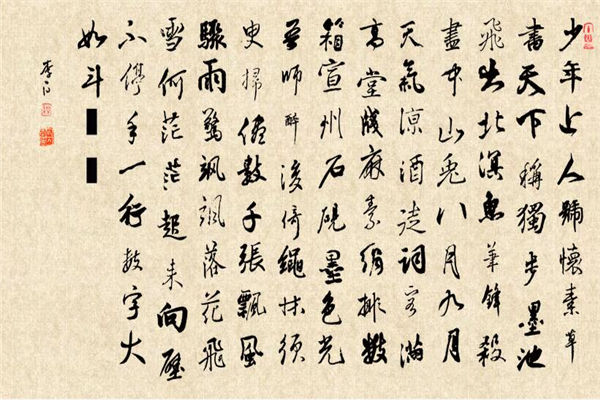 少年上人號懷素草
書天下稱獨步墨池
飛出北溟魚筆鋒殺
盡中山兔八月九月
天氣涼酒徒詞客滿
高堂牋麻素絹排數
箱宣州石硯墨色光
吾師醉後倚繩床須
臾掃儘數千張飄風
驟雨驚颯颯落花飛
雪何茫茫起來向壁
不停手一行數字大
如斗
李白